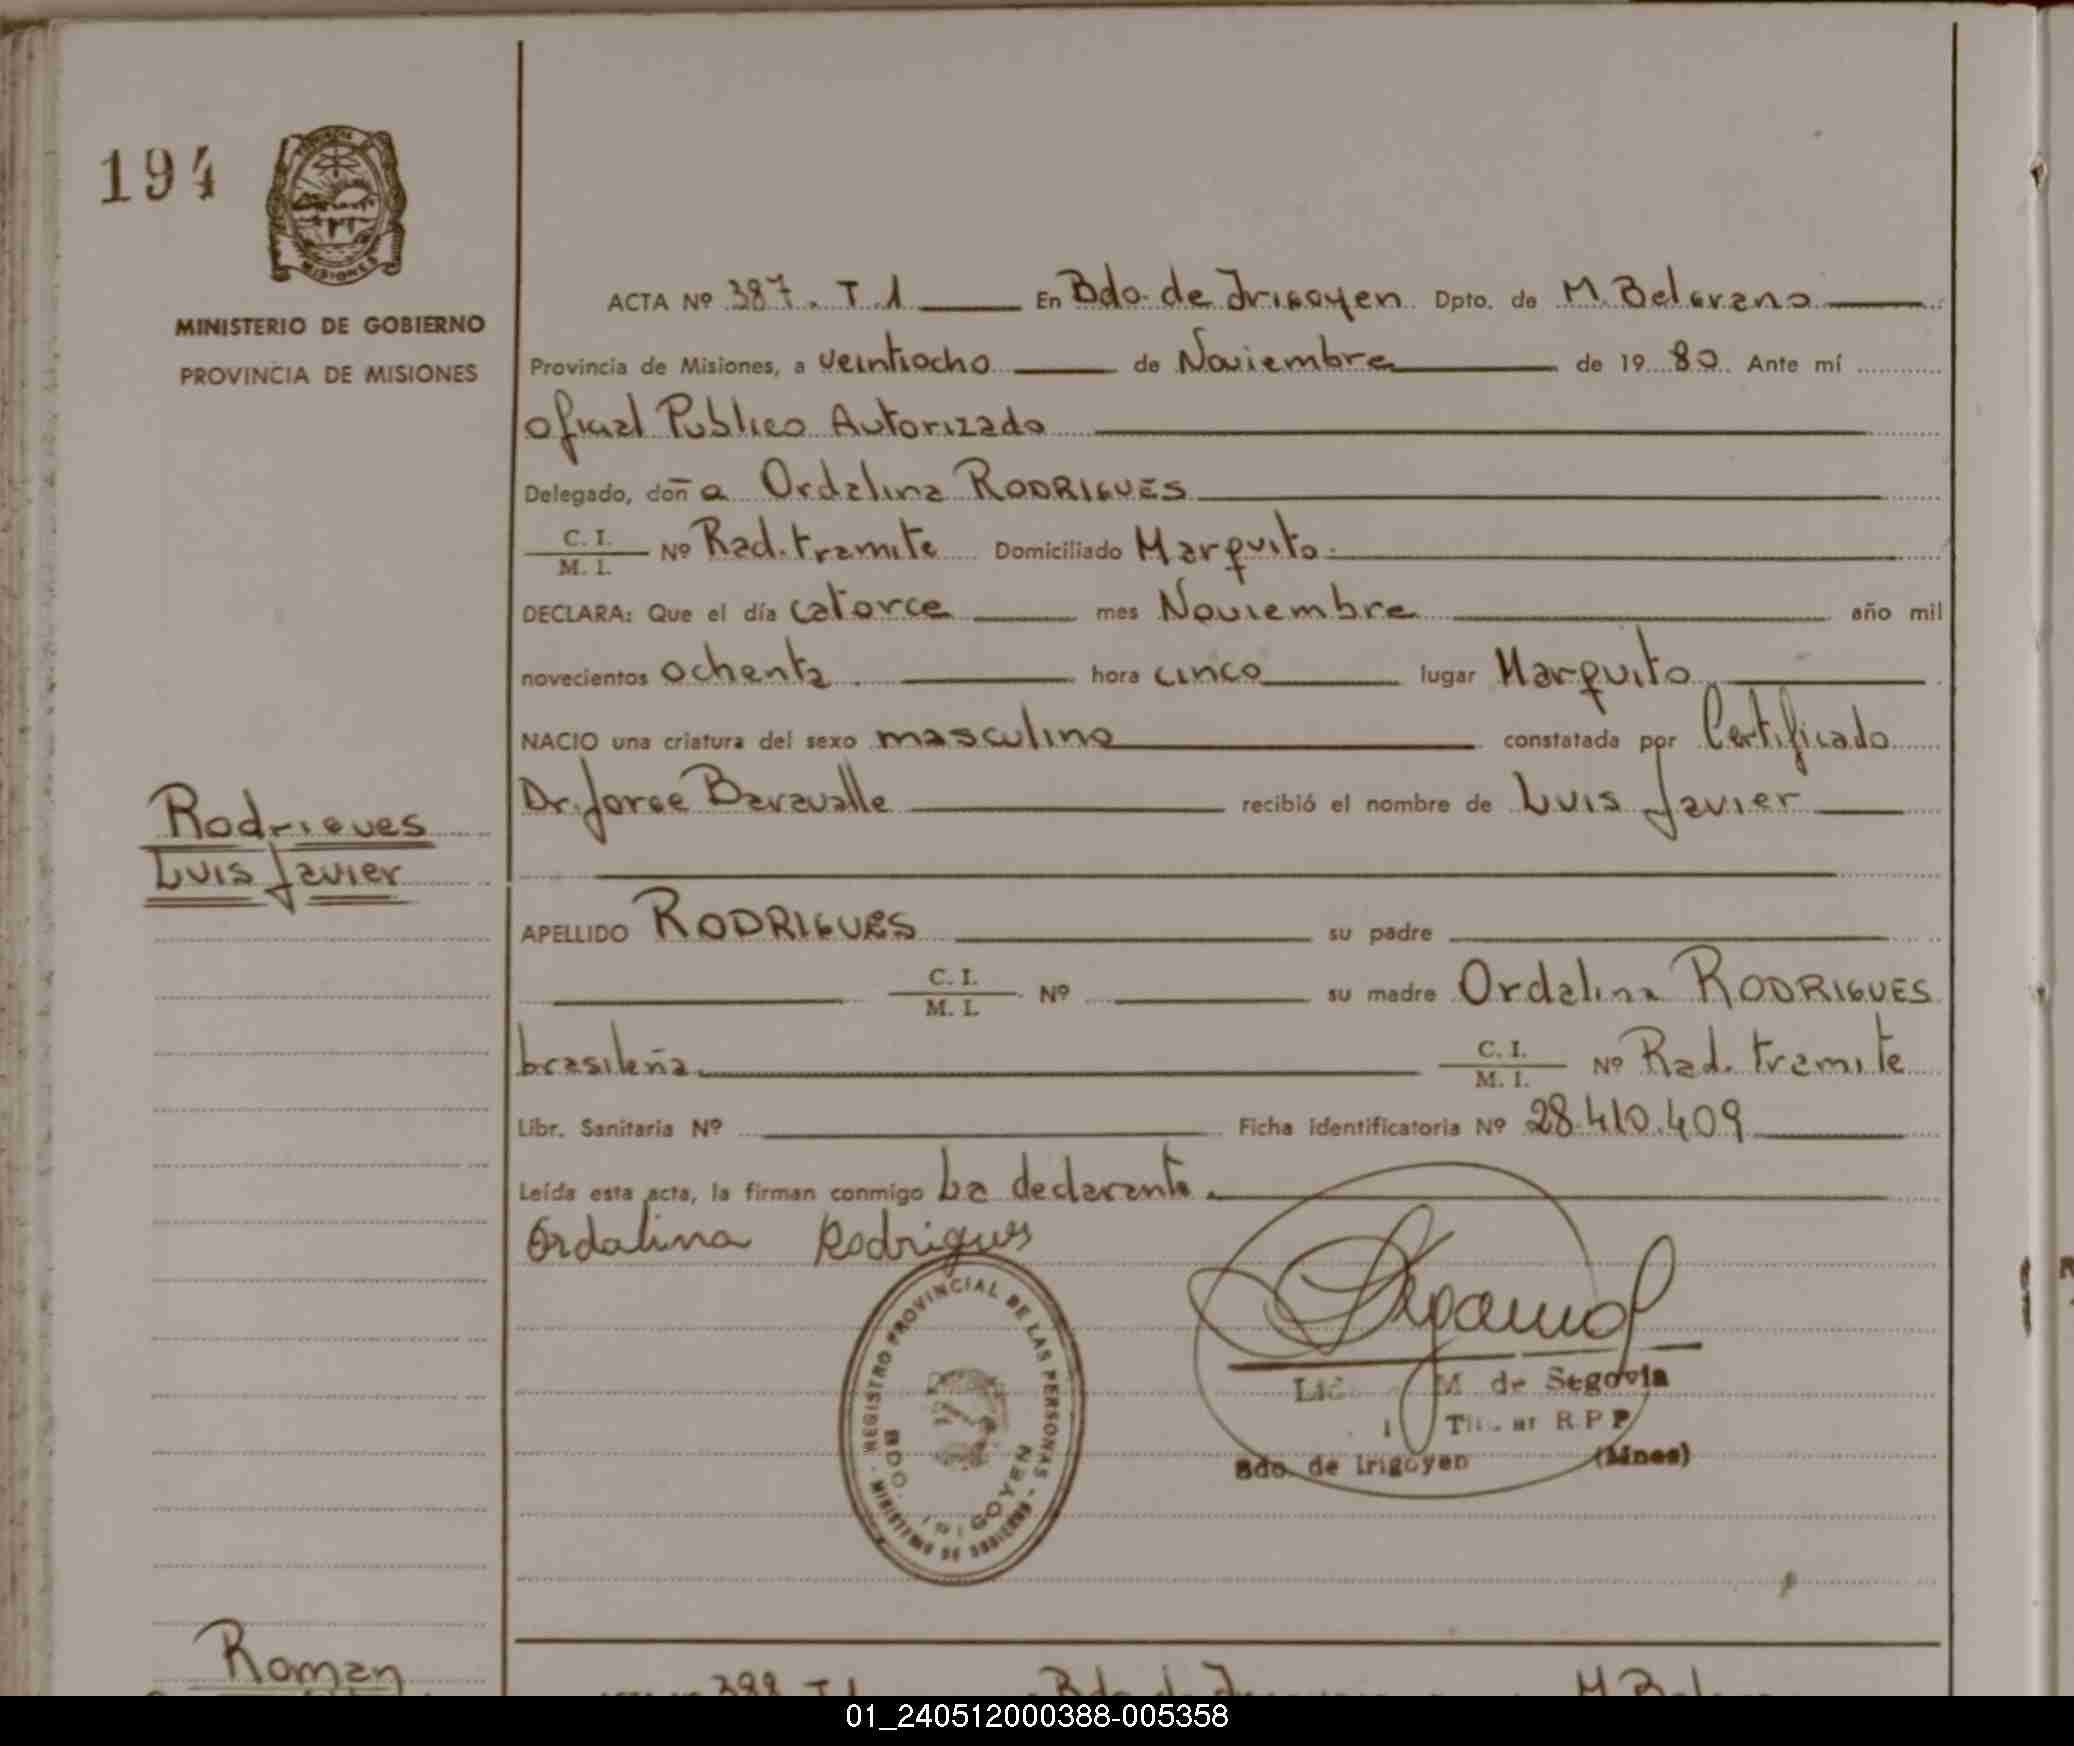 194
PROVINCIA
MISIONES
MINISTERIO DE GOBIERNO
PROVINCIA DE MISIONES
ACTA Nº 387. T. 1 En Bdo. de Irigoyen Dpto. de M. Belgrano
Provincia de Misiones, a veintiocho de Noviembre de 19 80. Ante mí
Oficial Publico Autorizado
Delegado, doña Ordalina RODRIGUES
C. I. / M. I. Nº Rad. tramite Domiciliado Marquito.
DECLARA: Que el día catorce mes Noviembre año mil
novecientos ochenta hora cinco lugar Marquito
NACIO una criatura del sexo masculino constatada por Certificado
Dr. Jorge Baravalle recibió el nombre de Luis Javier
Rodrigues
Luis Javier
APELLIDO RODRIGUES su padre
C. I. / M. I. Nº su madre Ordalina RODRIGUES
brasileña C. I. / M. I. Nº Rad. tramite
Libr. Sanitaria Nº Ficha identificatoria Nº 28.410.409
Leída esta acta, la firman conmigo La declarante.
Ordalina Rodrigues
REGISTRO PROVINCIAL DE LAS PERSONAS - MINISTERIO DE GOBIERNO -
BDO. IRIGOYEN
Lic M de Segovia
R P P
Bdo. de Irigoyen (Mnes)
Roman
388 T. 1 Bdo de Irigoyen M. Belgrano
01_240512000388-005358